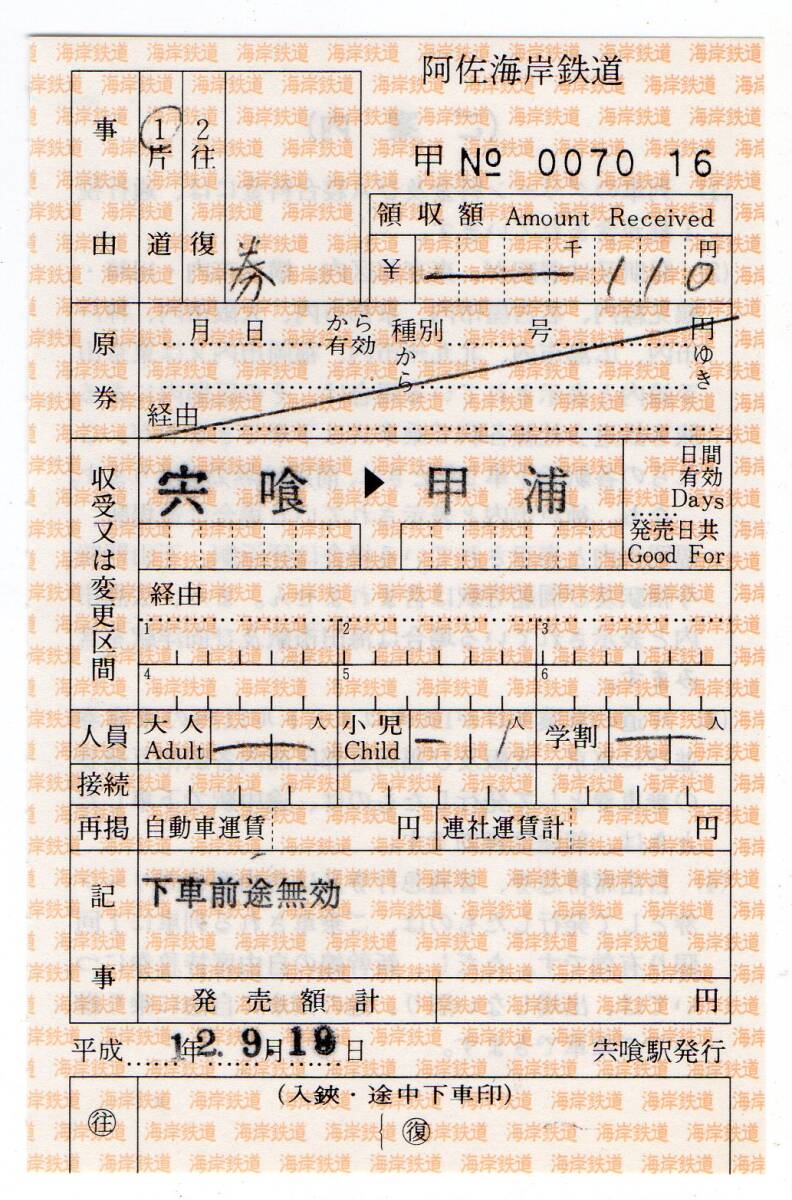 阿佐海岸鉄道
甲 № 0070 16
事由
1片道
2往復
券
領収額 Amount Received
¥ 千 110 円
原券
月 日 から有効 種別 号 円
から ゆき
経由
収受又は変更区間
宍喰 ▶ 甲浦
日間有効
Days
発売日共
Good For
経由
1 2 3
4 5 6
人員 大人 Adult 人 小児 Child 1 人 学割 人
接続
再掲 自動車運賃 円 連社運賃計 円
記事
下車前途無効
発売額計 円
平成 12年 9月 19日 宍喰駅発行
(入鋏・途中下車印)
往 復